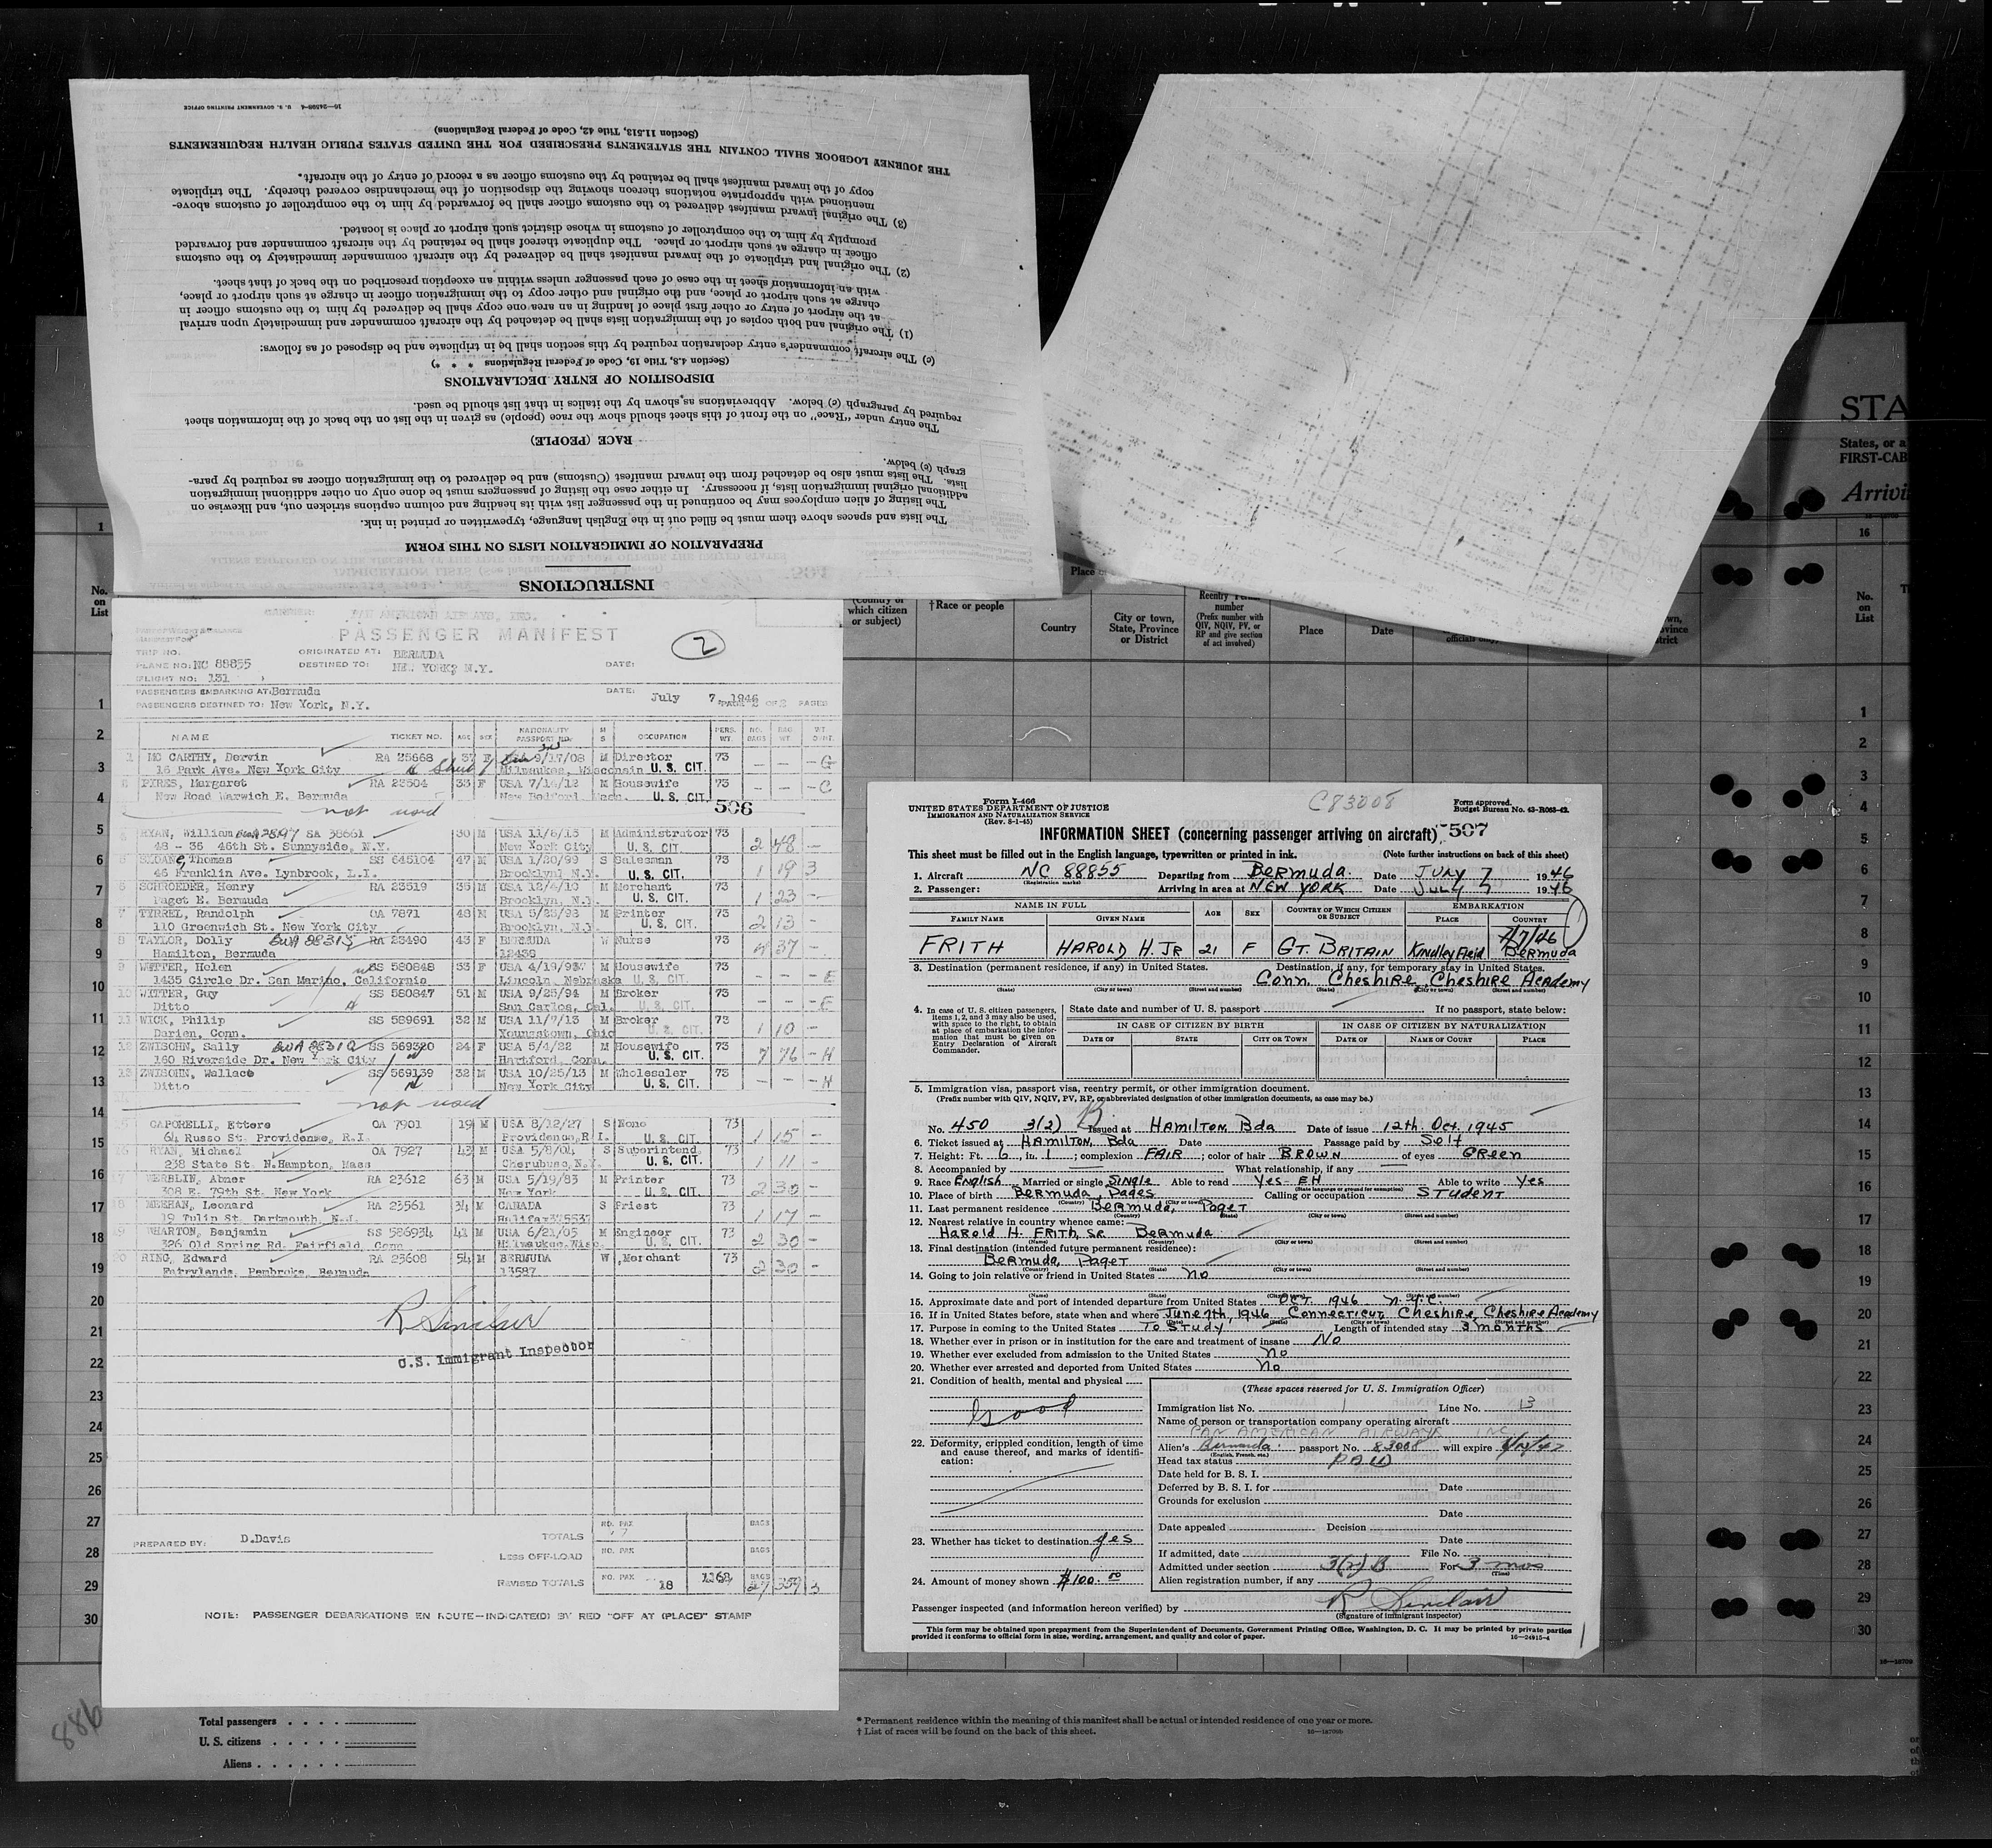 16—24598-4 U. S. GOVERNMENT PRINTING OFFICE
(Section 11.513, Title 42, Code of Federal Regulations)
THE JOURNEY LOGBOOK SHALL CONTAIN THE STATEMENTS PRESCRIBED FOR THE UNITED STATES PUBLIC HEALTH REQUIREMENTS
copy of the inward manifest shall be retained by the customs officer as a record of entry of the aircraft.
mentioned with appropriate notations thereon showing the disposition of the merchandise covered thereby. The triplicate
(3) The original inward manifest delivered to the customs officer shall be forwarded by him to the comptroller of customs above-
promptly by him to the comptroller of customs in whose district such airport or place is located.
officer in charge at such airport or place. The duplicate thereof shall be retained by the aircraft commander and forwarded
(2) The original and triplicate of the inward manifest shall be delivered by the aircraft commander immediately to the customs
with an information sheet in the case of each passenger unless within an exception prescribed on the back of that sheet.
charge at such airport or place, and the original and other copy to the immigration officer in charge at such airport or place,
at the airport of entry or other first place of landing in an area one copy shall be delivered by him to the customs officer in
(1) The original and both copies of the immigration lists shall be detached by the aircraft commander and immediately upon arrival
(c) The aircraft commander's entry declaration required by this section shall be in triplicate and be disposed of as follows:
(Section 4.8, Title 19, Code of Federal Regulations * * *)
DISPOSITION OF ENTRY DECLARATIONS
required by paragraph (c) below. Abbreviations as shown by the italics in that list should be used.
The entry under "Race" on the front of this sheet should show the race (people) as given in the list on the back of the information sheet
RACE (PEOPLE)
graph (c) below.
lists. The lists must also be detached from the inward manifest (Customs) and be delivered to the immigration officer as required by para-
additional original immigration lists, if necessary. In either case the listing of passengers must be done only on other additional immigration
The listing of alien employees may be continued in the passenger list with its heading and column captions stricken out, and likewise on
The lists and spaces above them must be filled out in the English language, typewritten or printed in ink.
PREPARATION OF IMMIGRATION LISTS ON THIS FORM
INSTRUCTIONS
PAN AMERICAN AIRWAYS, INC.
PASSENGER MANIFEST 2
TRIP NO.
ORIGINATED AT: BERMUDA
PLANE NO: NC 88855 DESTINED TO: NEW YORK, N.Y. DATE:
FLIGHT NO: 131
PASSENGERS EMBARKING AT: Bermuda DATE: July 7, 1946
PASSENGERS DESTINED TO: New York, N.Y. PAGE 2 OF 2 PAGES
NAME TICKET NO. AGE SEX NATIONALITY PASSPORT NO. M S OCCUPATION PERS. WT. NO. BAGS BAG. WT.
1 MC CARTHY, Dorvin RA 25668 37 F 9/17/08 M Director 73 — — - G
16 Park Ave. New York City Milwaukee, Wisconsin U. S. CIT.
PYRES, Margaret RA 23504 33 F USA 7/14/12 M Housewife 73 — — - C
New Road Warwick E. Bermuda New Bedford, Mass. U. S. CIT.
not used 506
RYAN, William SA 38661 30 M USA 11/6/15 M Administrator 73 2 48 -
48 - 36 46th St. Sunnyside, N.Y. New York City U. S. CIT.
SLOANE, Thomas SS 645104 47 M USA 1/20/99 S Salesman 73 1 19 3
46 Franklin Ave. Lynbrook, L.I. Brooklyn, N.Y. U. S. CIT.
SCHROEDER, Henry RA 23519 35 M USA 12/4/10 M Merchant 73 1 23 -
Paget E. Bermuda Brooklyn, N.Y. U. S. CIT.
7 TYRREL, Randolph OA 7871 48 M USA 5/25/98 M Printer 73 2 13 -
110 Greenwich St. New York City Brooklyn, N.Y. U. S. CIT.
8 TAYLOR, Dolly BWA 88315 RA 23490 43 F BERMUDA W Nurse 73 37 -
Hamilton, Bermuda 12438
9 WITTER, Helen SS 580848 53 F USA 4/19/93 M Housewife 73 — — - E
1435 Circle Dr. San Marino, California Lincoln, Nebraska U. S. CIT.
10 WITTER, Guy SS 580847 51 M USA 9/25/94 M Broker 73 — — - E
Ditto San Carlos, Cal. U. S. CIT.
11 WICK, Philip SS 589691 32 M USA 11/7/13 M Broker 73 1 10 -
Darien, Conn. Youngstown, Ohio U. S. CIT.
12 ZWISOHN, Sally BWA 88310 SS 569320 24 F USA 5/4/22 M Housewife 73 7 76 - H
160 Riverside Dr. New York City Hartford, Conn. U. S. CIT.
13 ZWISOHN, Wallace SS 569139 32 M USA 10/25/13 M Wholesaler 73 — — - H
Ditto New York City U. S. CIT.
not used
CAPORELLI, Ettore OA 7901 19 M USA 8/12/27 S None 73 1 15 -
64 Russo St. Providence, R.I. Providence, R.I. U. S. CIT.
16 RYAN, Michael OA 7927 42 M USA 5/8/04 S Superintend 73 1 11 -
238 State St. N.Hampton, Mass Cherubusc, N.Y. U. S. CIT.
17 WERBLIN, Abner RA 23612 63 M USA 5/19/83 M Printer 73 2 30 -
308 E. 79th St. New York New York U. S. CIT.
18 MEEHAN, Leonard RA 23561 34 M CANADA S Priest 73 1 17 -
19 Tulip St. Dartmouth, N.J. Halifax 375537
19 WHARTON, Benjamin SS 586934 41 M USA 6/21/05 M Engineer 73 2 30 -
326 Old Spring Rd. Fairfield, Conn Milwaukee, Wisc. U. S. CIT.
20 RING, Edward RA 23608 54 M BERMUDA W Merchant 73 2 30 -
Fairylands, Pembroke, Bermuda 13587
R Sinclair
U.S. Immigrant Inspector
PREPARED BY: D.Davis
TOTALS NO. PAX BAGS
LESS OFF-LOAD NO. PAX BAGS
REVISED TOTALS NO. PAX 18 BAGS 27 359 3
NOTE: PASSENGER DEBARKATIONS EN ROUTE—INDICATE(D) BY RED "OFF AT (PLACE)" STAMP
886
Total passengers
U. S. citizens
Aliens
* Permanent residence within the meaning of this manifest shall be actual or intended residence of one year or more.
† List of races will be found on the back of this sheet.
Form I-466 C83008 Form approved.
UNITED STATES DEPARTMENT OF JUSTICE Budget Bureau No. 43-R063-42.
IMMIGRATION AND NATURALIZATION SERVICE
(Rev. 8-1-45)
INFORMATION SHEET (concerning passenger arriving on aircraft) 507
This sheet must be filled out in the English language, typewritten or printed in ink. (Note further instructions on back of this sheet)
1. Aircraft NC 88855 Departing from Bermuda. Date JULY 7 1946
(Registration marks)
2. Passenger: Arriving in area at NEW YORK Date JULY 7 1946
NAME IN FULL AGE SEX COUNTRY OF WHICH CITIZEN OR SUBJECT EMBARKATION
FAMILY NAME GIVEN NAME PLACE COUNTRY
7/7/46
FRITH HAROLD H. JR 21 F GT. BRITAIN Kindley Field Bermuda
3. Destination (permanent residence, if any) in United States. Destination, if any, for temporary stay in United States.
Conn. Cheshire, Cheshire Academy
(State) (City or town) (Street and number) (State) (City or town) (Street and number)
4. In case of U. S. citizen passengers, items 1, 2, and 3 may also be used, with space to the right, to obtain at place of embarkation the information that must be given on Entry Declaration of Aircraft Commander.
State date and number of U. S. passport If no passport, state below:
IN CASE OF CITIZEN BY BIRTH IN CASE OF CITIZEN BY NATURALIZATION
DATE OF STATE CITY OR TOWN DATE OF NAME OF COURT PLACE
5. Immigration visa, passport visa, reentry permit, or other immigration document.
(Prefix number with QIV, NQIV, PV, RP, or abbreviated designation of other immigration documents, as case may be.)
No. 450 3(2) B Issued at HAMILTON, Bda Date of issue 12th. Oct. 1945
6. Ticket issued at HAMILTON, Bda Date Passage paid by Self
7. Height: Ft. 6, in. 1; complexion FAIR; color of hair BROWN of eyes GREEN
8. Accompanied by What relationship, if any
9. Race English Married or single SINGLE Able to read Yes - EH Able to write Yes
(State language or ground for exemption)
10. Place of birth Bermuda, Pagets Calling or occupation STUDENT
11. Last permanent residence Bermuda, Paget
12. Nearest relative in country whence came:
Harold H. FRITH, SR. Bermuda
(Name) (Country) (City or town) (Street and number)
13. Final destination (intended future permanent residence):
Bermuda, Paget
(Country) (State) (City or town) (Street and number)
14. Going to join relative or friend in United States No
15. Approximate date and port of intended departure from United States OCT. 1946 N.Y.C.
16. If in United States before, state when and where June 7th, 1946 Connecticut, Cheshire, Cheshire Academy
17. Purpose in coming to the United States To Study Length of intended stay 3 months
18. Whether ever in prison or in institution for the care and treatment of insane No
19. Whether ever excluded from admission to the United States No
20. Whether ever arrested and deported from United States No
21. Condition of health, mental and physical
Good
22. Deformity, crippled condition, length of time and cause thereof, and marks of identification:
23. Whether has ticket to destination yes
24. Amount of money shown $100.00
(These spaces reserved for U. S. Immigration Officer)
Immigration list No. 1 Line No. 13
Name of person or transportation company operating aircraft
PAN AMERICAN AIRWAYS INC.
Alien's Bermuda passport No. 83008 will expire
(English, French, etc.)
Head tax status
Date held for B. S. I.
Deferred by B. S. I. for Date
Grounds for exclusion
Date
Date appealed Decision
Date
If admitted, date File No.
Admitted under section 3(2) B For 3 mos
(Time)
Alien registration number, if any
Passenger inspected (and information hereon verified) by R Sinclair
(Signature of immigrant inspector)
This form may be obtained upon prepayment from the Superintendent of Documents, Government Printing Office, Washington, D. C. It may be printed by private parties
provided it conforms to official form in size, wording, arrangement, and quality and color of paper. 16—24915-4
1
No. on List
1 2 3 4 5 6 7 8 9 10 11 12 13 14 15 16 17 18 19 20 21 22 23 24 25 26 27 28 29 30
which citizen or subject)
†Race or people
Country
City or town, State, Province or District
Reentry
number
(Prefix number with QIV, NQIV, PV, or RP and give section of act involved)
Place
Date
STA
States, or a
FIRST-CAB
Arrivi
16
No. on List
1 2 3 4 5 6 7 8 9 10 11 12 13 14 15 16 17 18 19 20 21 22 23 24 25 26 27 28 29 30